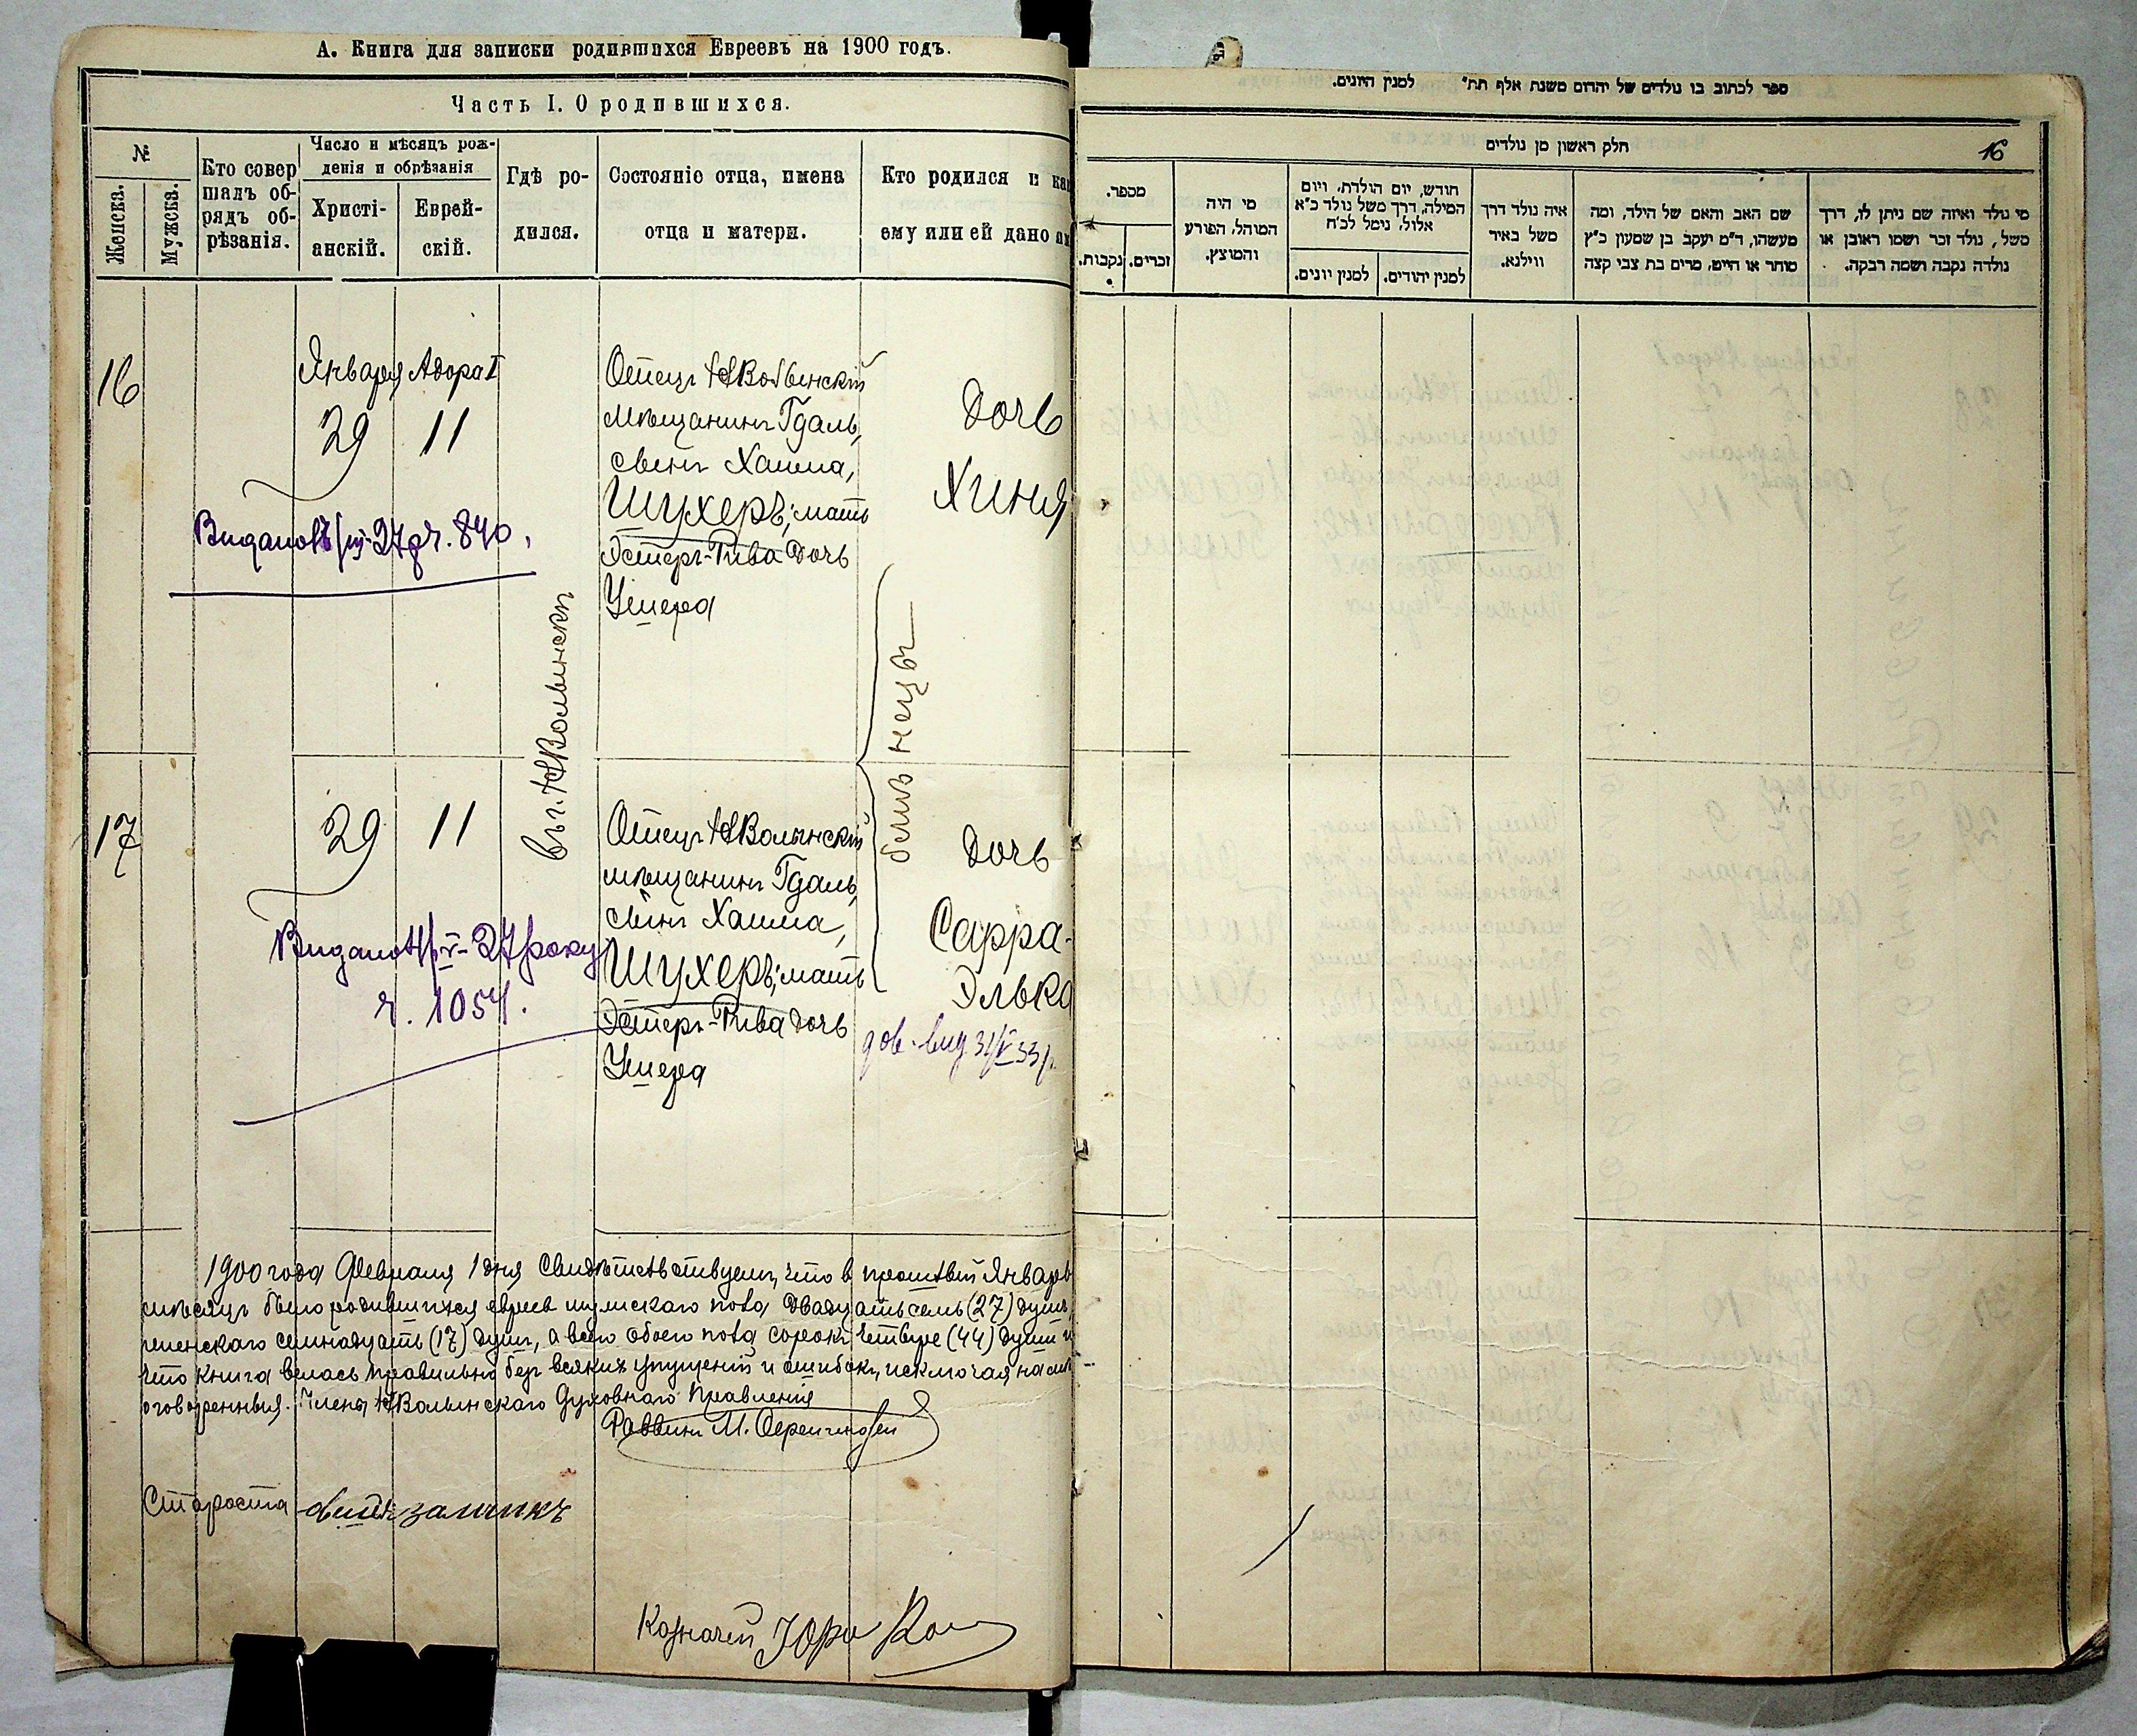 А. Книга для записки родившихся Евреевъ на 1900 годъ.
Часть I. О родившихся.
№
Женска.
Мужска.
Кто совер
шалъ об-
рядъ об-
рѣзанія.
Число и мѣсяцъ рож-
денія и обрѣзанія
Христі-
анскій.
Еврей-
скій.
Гдѣ ро-
дился.
Состояніе отца, имена
отца и матери.
Кто родился и ка
ему или ей дано
16
Января
29
Адора I
11
Отецъ
мѣщанинъ Гдаль,
сынъ Хаима,
Шухеръ; мать
Эстеръ-Рива дочь
Ушера
Дочь
Хиня
27 р ч. 840,
17
29
11
Отецъ
мѣщанинъ Гдаль,
сынъ Хаима,
Шухеръ; мать
Эстеръ-Рива дочь
Ушера
близнецы
Дочь
Сарра-
Элька
27 року
ч. 1054.
1900 года Февраля 1 дня Свидѣтельствуемъ, что в Январь
мѣсяцъ было родившихся евреев мужскаго пола двадцать семь (27) душъ,
женскаго семнадцать (17) душъ, а всего обоего пола сорокъ четыре (44) души и
что книга велась правильно без всяких упущеній и ошибокъ, исключая
оговоренныя. Члены Духовнаго Правленія
Раввинъ М.
Староста
Казначей
ספר לכתוב בו נולדים של יהודים משנת אלף תת" למנין היונים.
חלק ראשון מן נולדים
16
מספר.
נקבות.
זכרים.
מי היה
המוהל, הפורע
והמוצץ.
חודש, יום הולדת, ויום
המילה, דרך משל נולד כ"א
אלול, נימל לכ"ח
למנין יונים.
למנין יהודים.
איה נולד דרך
משל באיר
ווילנא.
שם האב והאם של הילד, ומה
מעשהו, ד"מ יעקב בן שמעון כ"ץ
סוחר או חייט, מרים בת צבי קצה
מי נולד ואיזה שם ניתן לו, דרך
משל, נולד זכר ושמו ראובן או
נולדה נקבה ושמה רבקה.